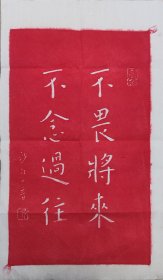 不畏將來
不念過往